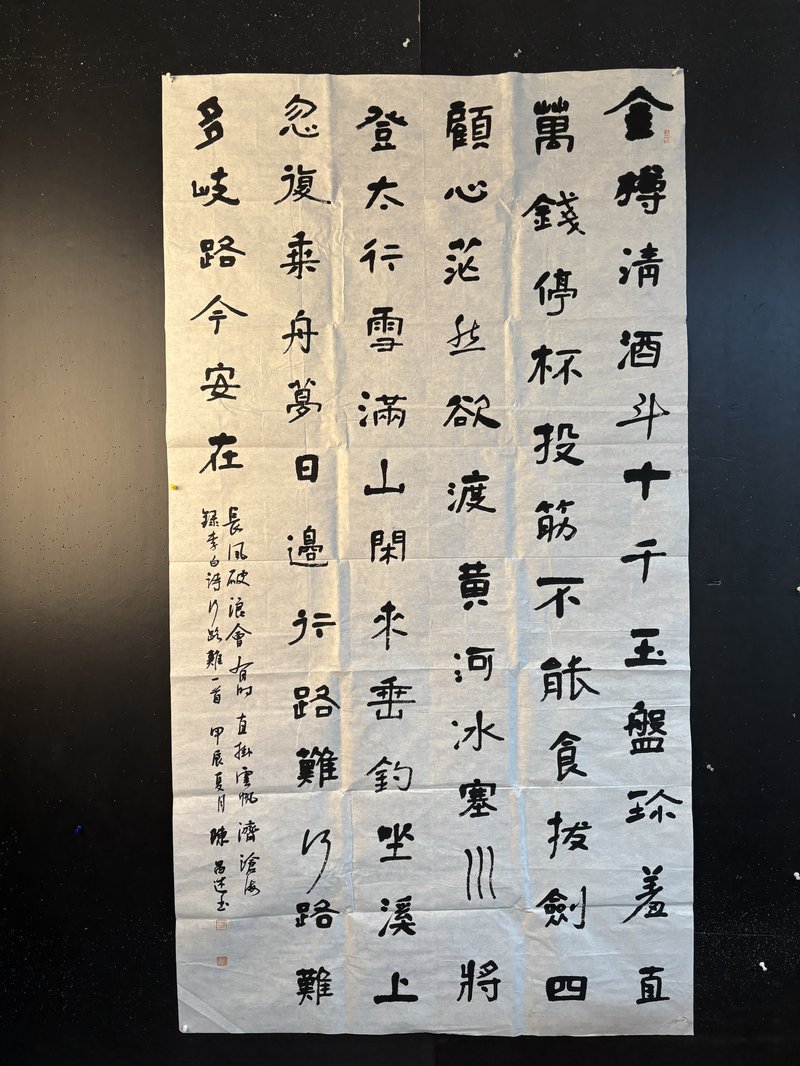 金樽清酒斗十千玉盤珎羞直
萬錢停杯投筯不能食拔劍四
顧心茫然欲渡黄河冰塞川將
登太行雪滿山閑來垂釣坐溪上
忽復乘舟夢日邊行路難行路難
多岐路今安在
長風破浪會有時直掛雲帆濟滄海
録李白詩行路難一首 甲辰夏月 陳昌書